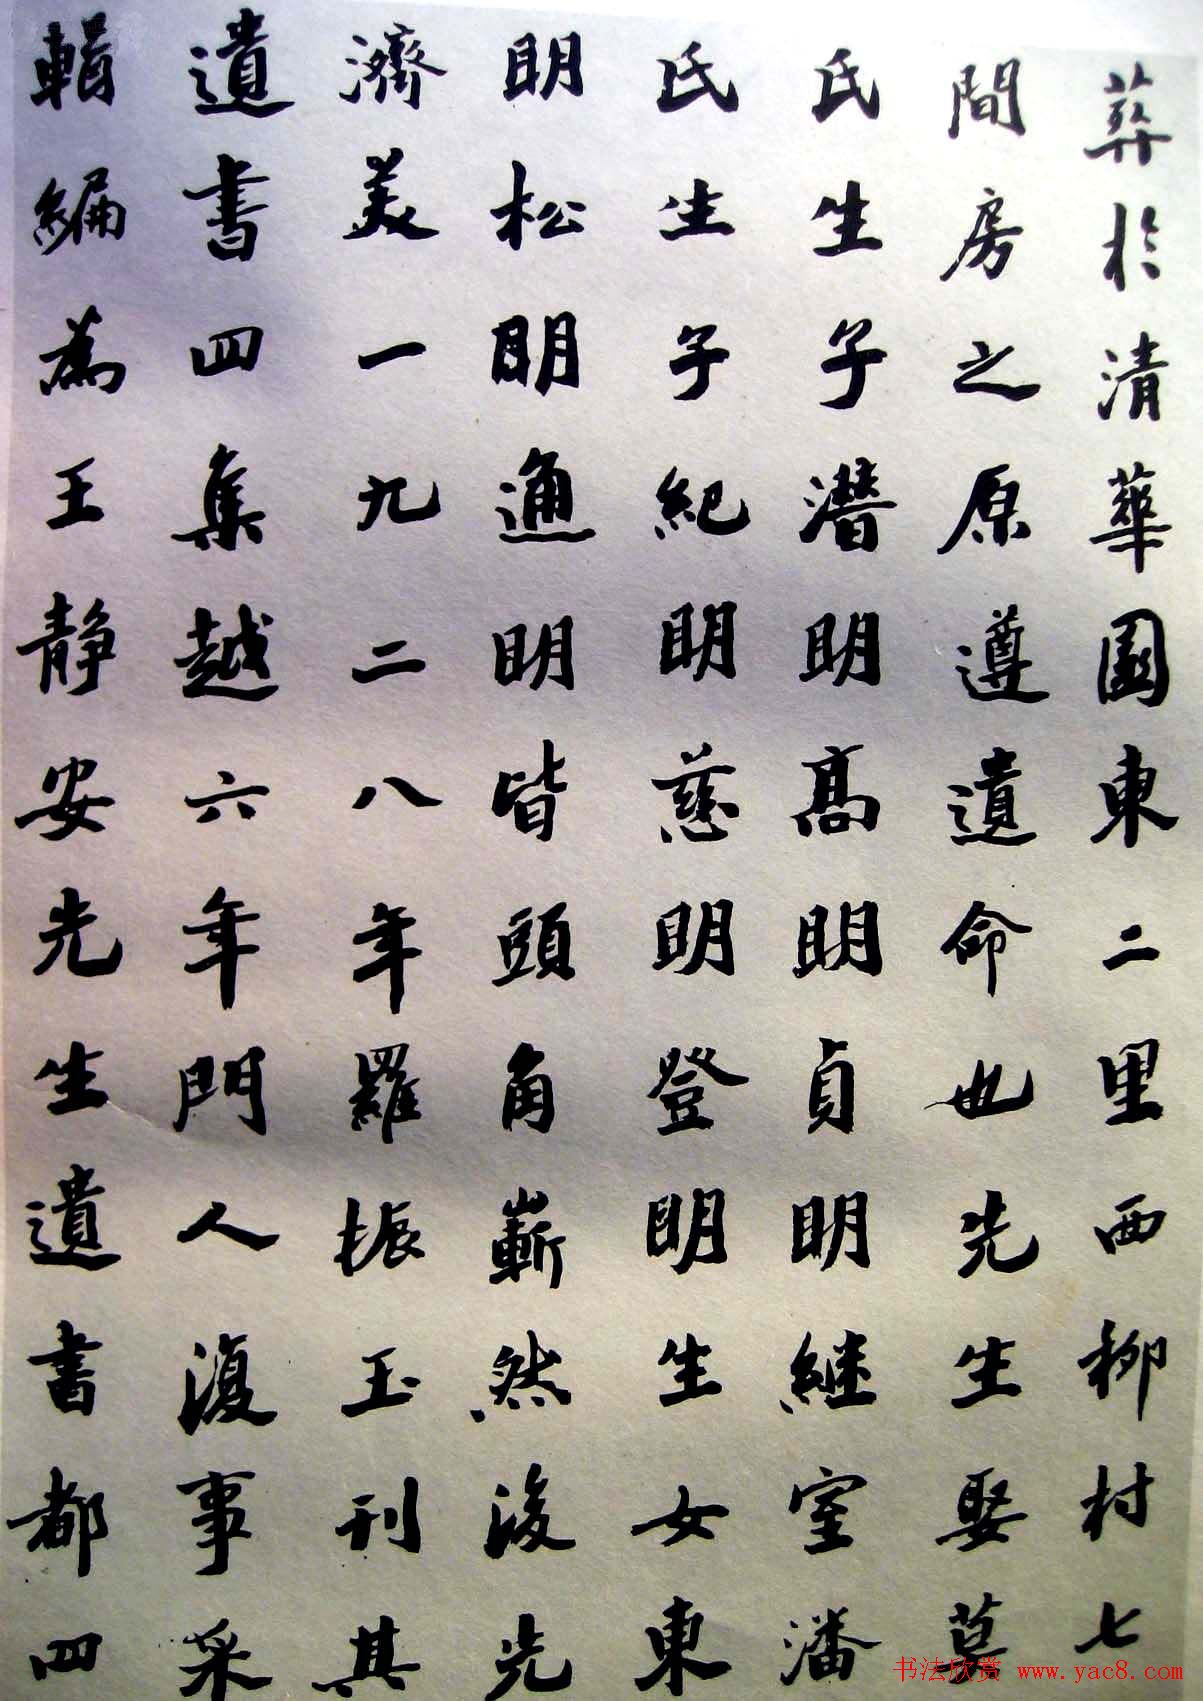 葬於清華園東二里西柳村七
間房之原遵遺命也先生娶莫
氏生子潛明高明貞明継室潘
氏生子紀明慈明登明生女東
明松明通明皆頭角嶄然後先
濟美一九二八年羅振玉刊其
遺書四集越六年門人復事采
輯編為王静安先生遺書都四
书法欣赏 www.yac8.com